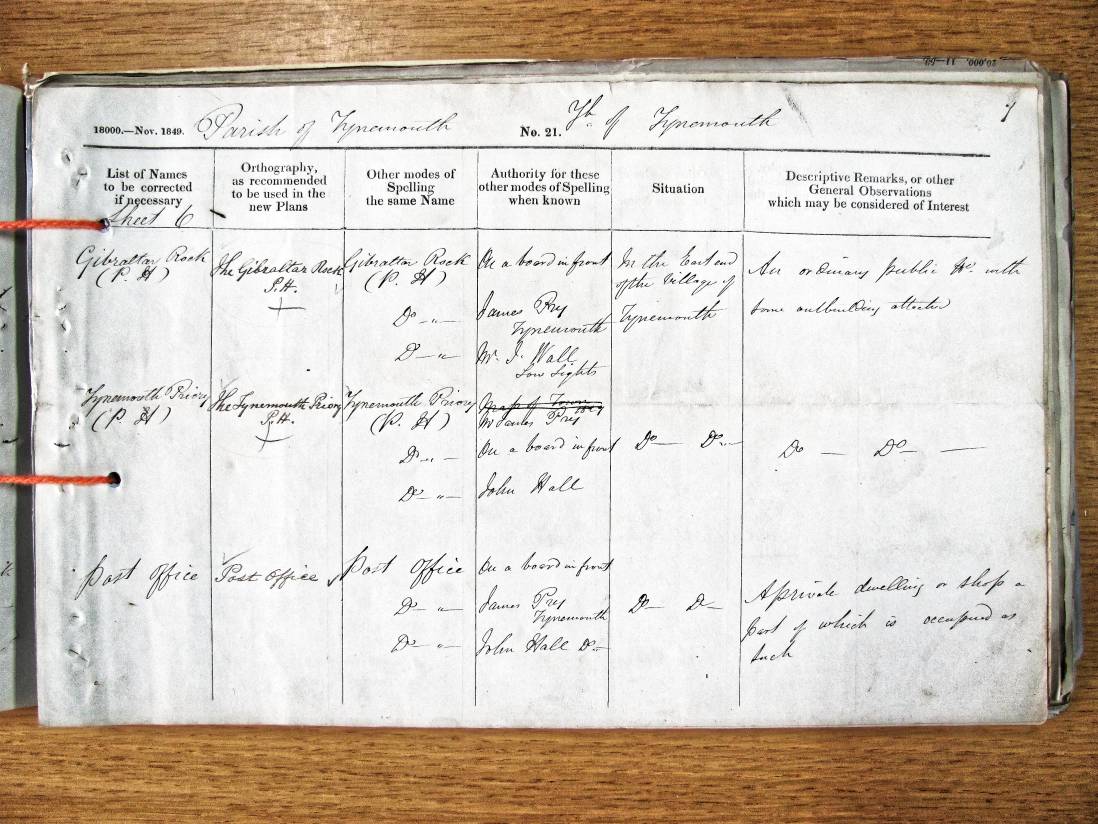 18000.—Nov. 1849. Parish of Tynemouth No. 21. Tp of Tynemouth 7
List of Names
to be corrected
if necessary
Orthography,
as recommended
to be used in the
new Plans
Other modes of
Spelling
the same Name
Authority for these
other modes of Spelling
when known
Situation
Descriptive Remarks, or other
General Observations
which may be considered of Interest
Sheet 6
Gibraltar Rock
(P. H)
The Gibraltar Rock
P.H.
Gibraltar Rock
(P. H)
Do
Do
On a board in front
James Pry
Tynemouth
Mr. J. Wall
Low Lights
In the East end
of the Village of
Tynemouth
An ordinary public Ho. with
some outbuilding attached
Tynemouth Priory
(P. H)
The Tynemouth Priory
P.H.
Tynemouth Priory
(P. H)
Do
Do
Map of Town
Mr James Pry
On a board in front
John Hall
Do — Do
Do — Do —
Post Office
Post Office
Post Office
Do
Do
On a board in front
James Pry
Tynemouth
John Hall Do
Do Do
A private dwelling or shop a
part of which is occupied as
such